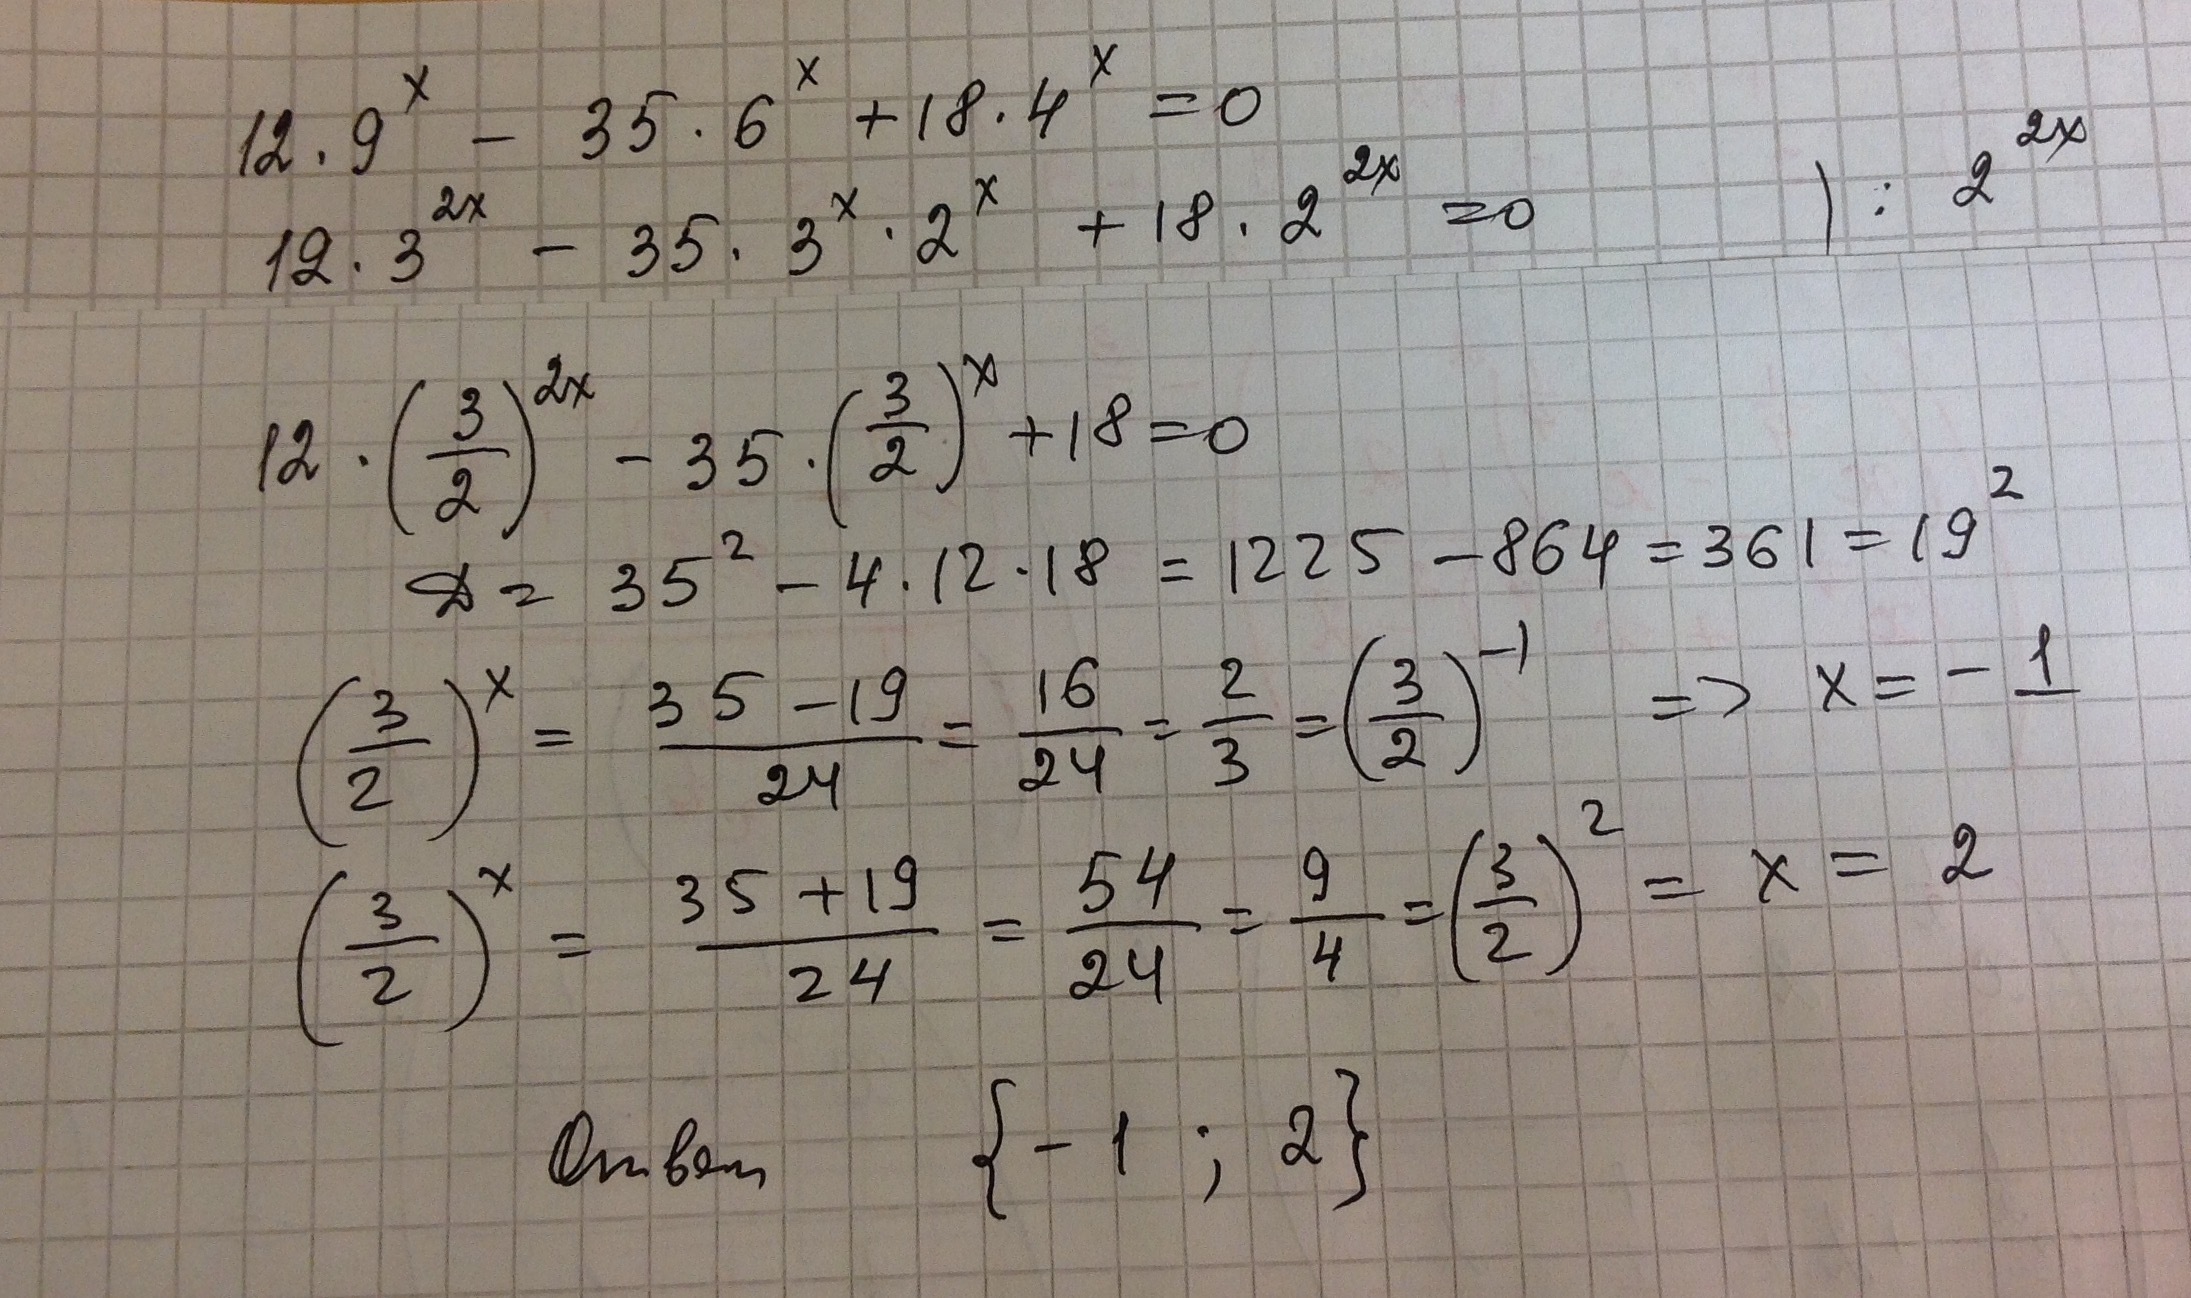 12 · 9^x - 35 · 6^x + 18 · 4^x = 0
12 · 3^{2x} - 35 · 3^x · 2^x + 18 · 2^{2x} = 0 | : 2^{2x}
12 · (3/2)^{2x} - 35 · (3/2)^x + 18 = 0
D = 35^2 - 4 · 12 · 18 = 1225 - 864 = 361 = 19^2
(3/2)^x = (35 - 19)/24 = 16/24 = 2/3 = (3/2)^{-1} => x = -1
(3/2)^x = (35 + 19)/24 = 54/24 = 9/4 = (3/2)^2 = x = 2
Ответ {-1 ; 2}